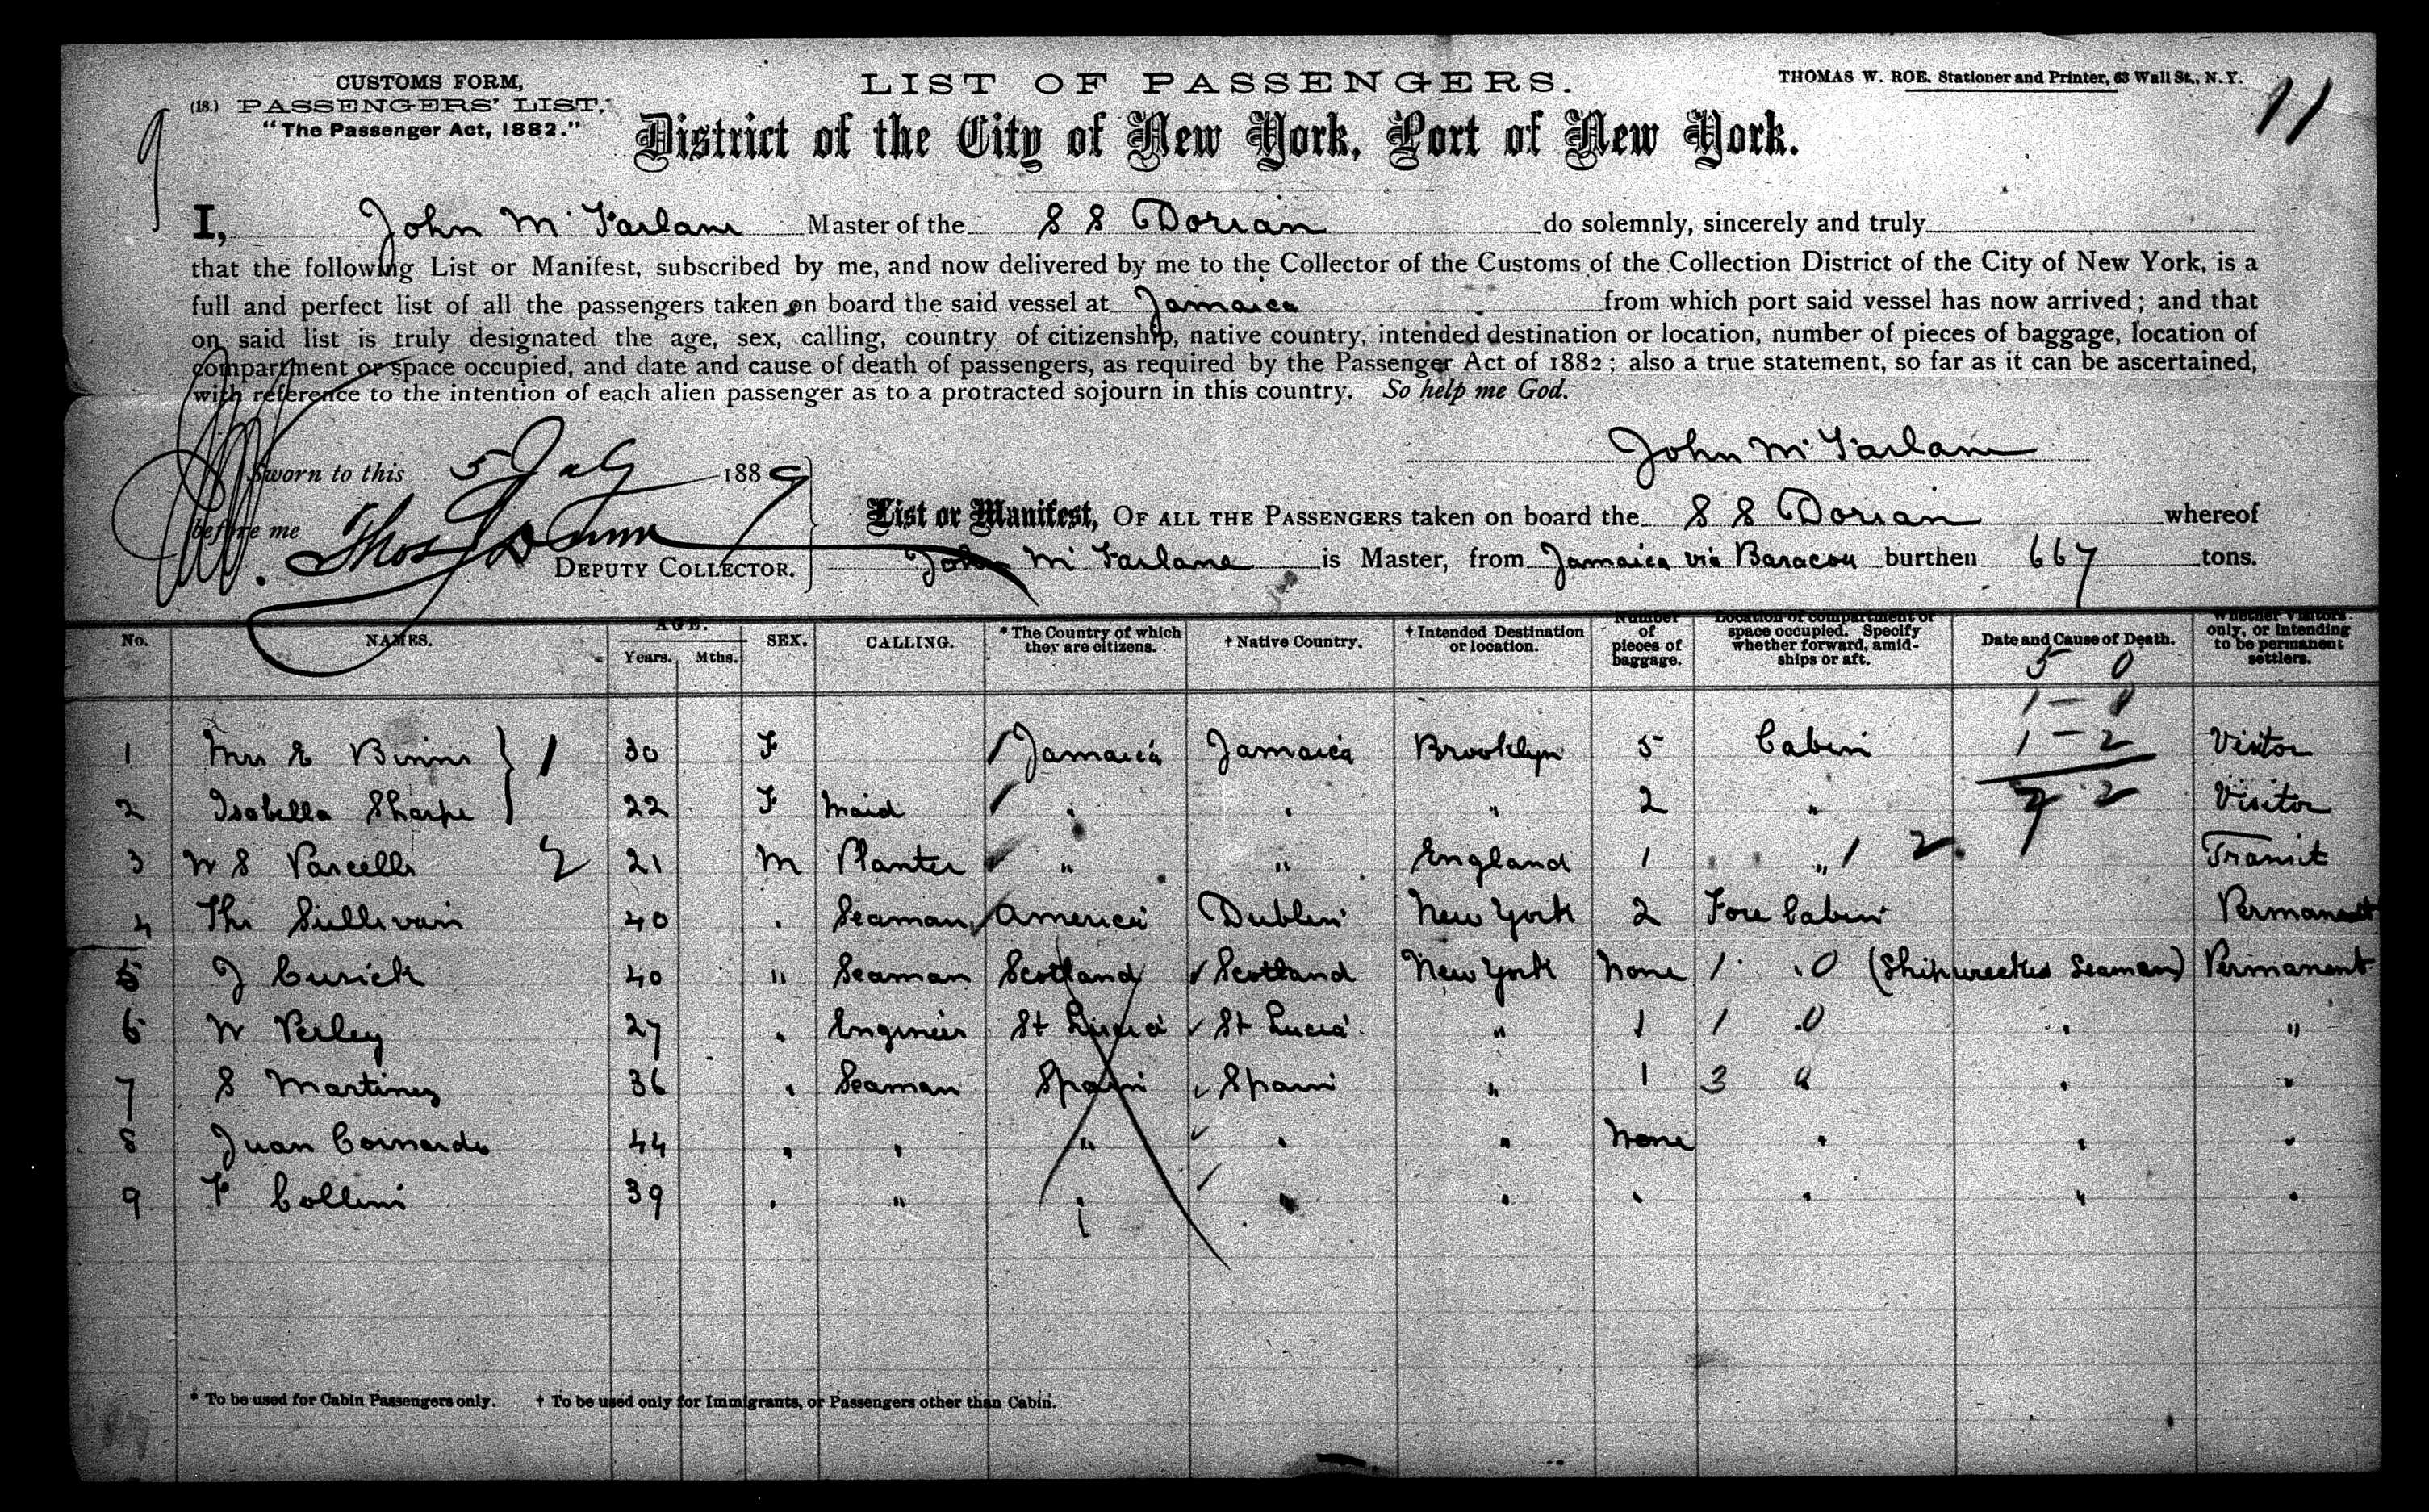 CUSTOMS FORM,
(18.) PASSENGERS' LIST.
"The Passenger Act, 1882."
LIST OF PASSENGERS.
THOMAS W. ROE. Stationer and Printer, 63 Wall St., N. Y.
9
11
District of the City of New York, Port of New York.
I, John McFarlane Master of the S S Dorian do solemnly, sincerely and truly
that the following List or Manifest, subscribed by me, and now delivered by me to the Collector of the Customs of the Collection District of the City of New York, is a
full and perfect list of all the passengers taken on board the said vessel at Jamaica from which port said vessel has now arrived; and that
on said list is truly designated the age, sex, calling, country of citizenship, native country, intended destination or location, number of pieces of baggage, location of
compartment or space occupied, and date and cause of death of passengers, as required by the Passenger Act of 1882; also a true statement, so far as it can be ascertained,
with reference to the intention of each alien passenger as to a protracted sojourn in this country. So help me God.
John McFarlane
Sworn to this 5 July 1889
before me Thos
DEPUTY COLLECTOR.
List or Manifest, OF ALL THE PASSENGERS taken on board the S S Dorian whereof
John McFarlane is Master, from Jamaica via Baracoa burthen 667 tons.
No. NAMES. AGE. Years. Mths. SEX. CALLING. * The Country of which they are citizens. † Native Country. † Intended Destination or location. Number of pieces of baggage. Location of compartment or space occupied. Specify whether forward, amidships or aft. Date and Cause of Death. Whether Visitors only, or intending to be permanent settlers.
5 0
1 - 0
1 Mrs E Binns } 1 30 F Jamaica Jamaica Brooklyn 5 Cabin 1 - 2 Visitor
2 Isabella Sharpe 22 F Maid " " " 2 " 7 2 Visitor
3 W S Parcells 2 21 M Planter " " England 1 " 1 2 Transit
4 Thos Sullivan 40 " Seaman America Dublin New York 2 Fore Cabin Permanent
5 J Cusick 40 " Seaman Scotland Scotland New York None 1 0 (Shipwrecked Seaman) Permanent
6 W Perley 27 " Engineer St Lucia St Lucia " 1 1 0 " "
7 S Martinez 36 " Seaman Spain Spain " 1 3 " "
8 Juan 44 " " " " " None " " "
9 F Collins 39 " " " " " " " " "
* To be used for Cabin Passengers only. † To be used only for Immigrants, or Passengers other than Cabin.